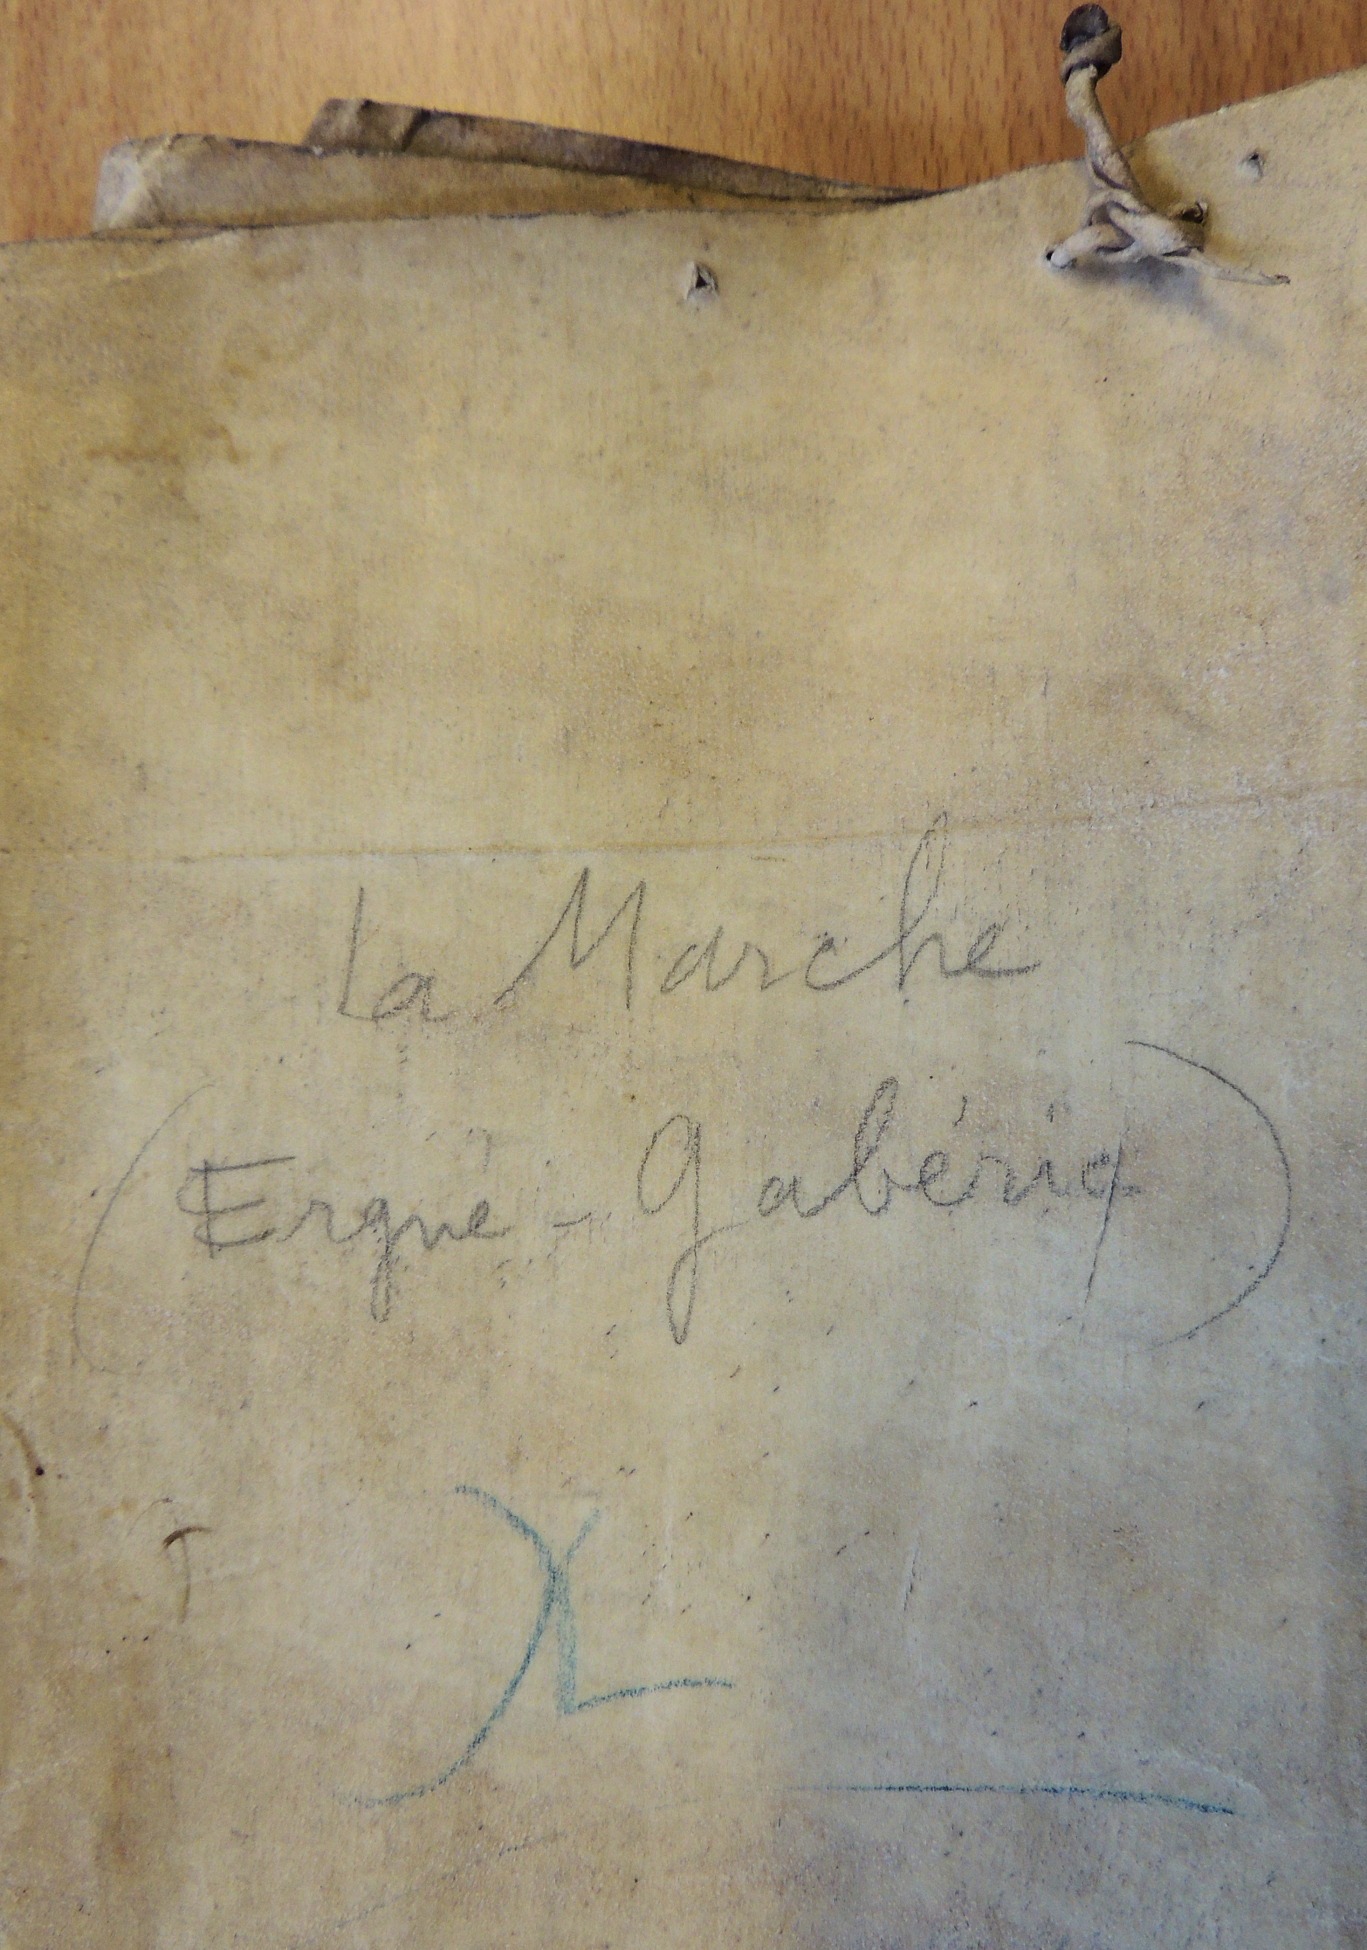 La Marche
(Ergué-Gabéric)
XL